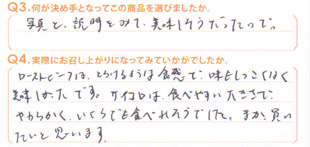 Q3.何が決め手となってこの商品を選びましたか。
写真と、説明をみて、美味しそうだったので。
Q4.実際にお召し上がりになってみていかがでしたか。
ローストビーフは、とろけるような食感で、味もしつこくなく
美味しかったです。サイコロは、食べやすい大きさで、
やわらかく、いくらでも食べれそうでした。また、買い
たいと思います。